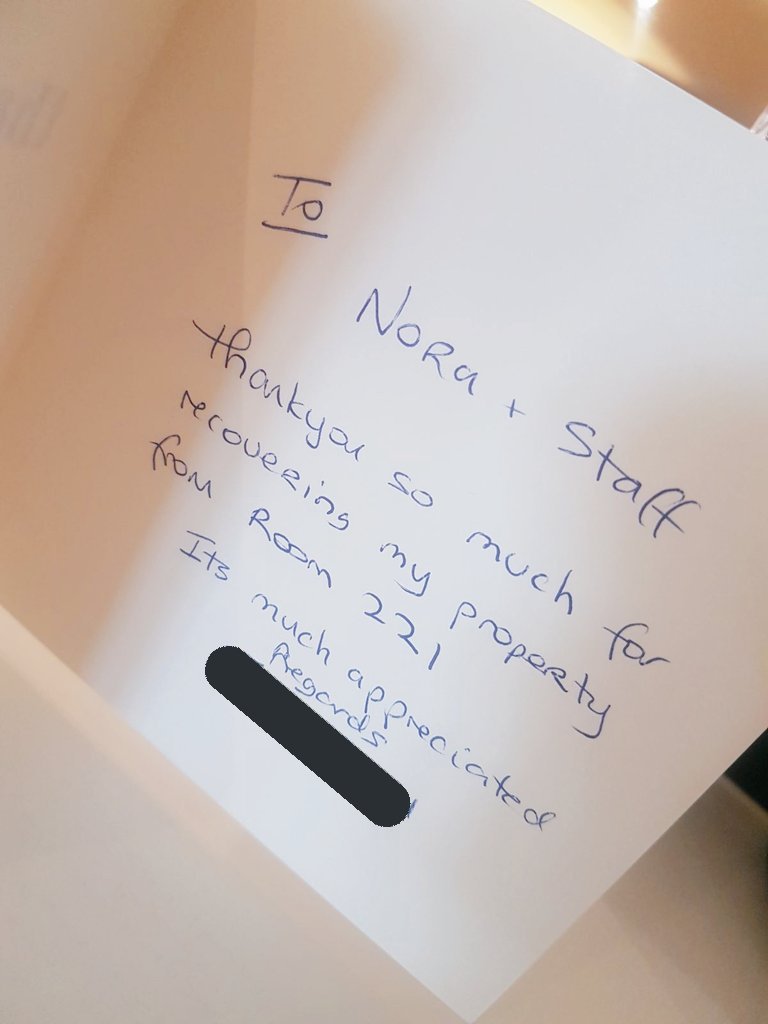 To
Nora + Staff
thankyou so much for
recovering my property
from Room 221
Its much appreciated
Regards